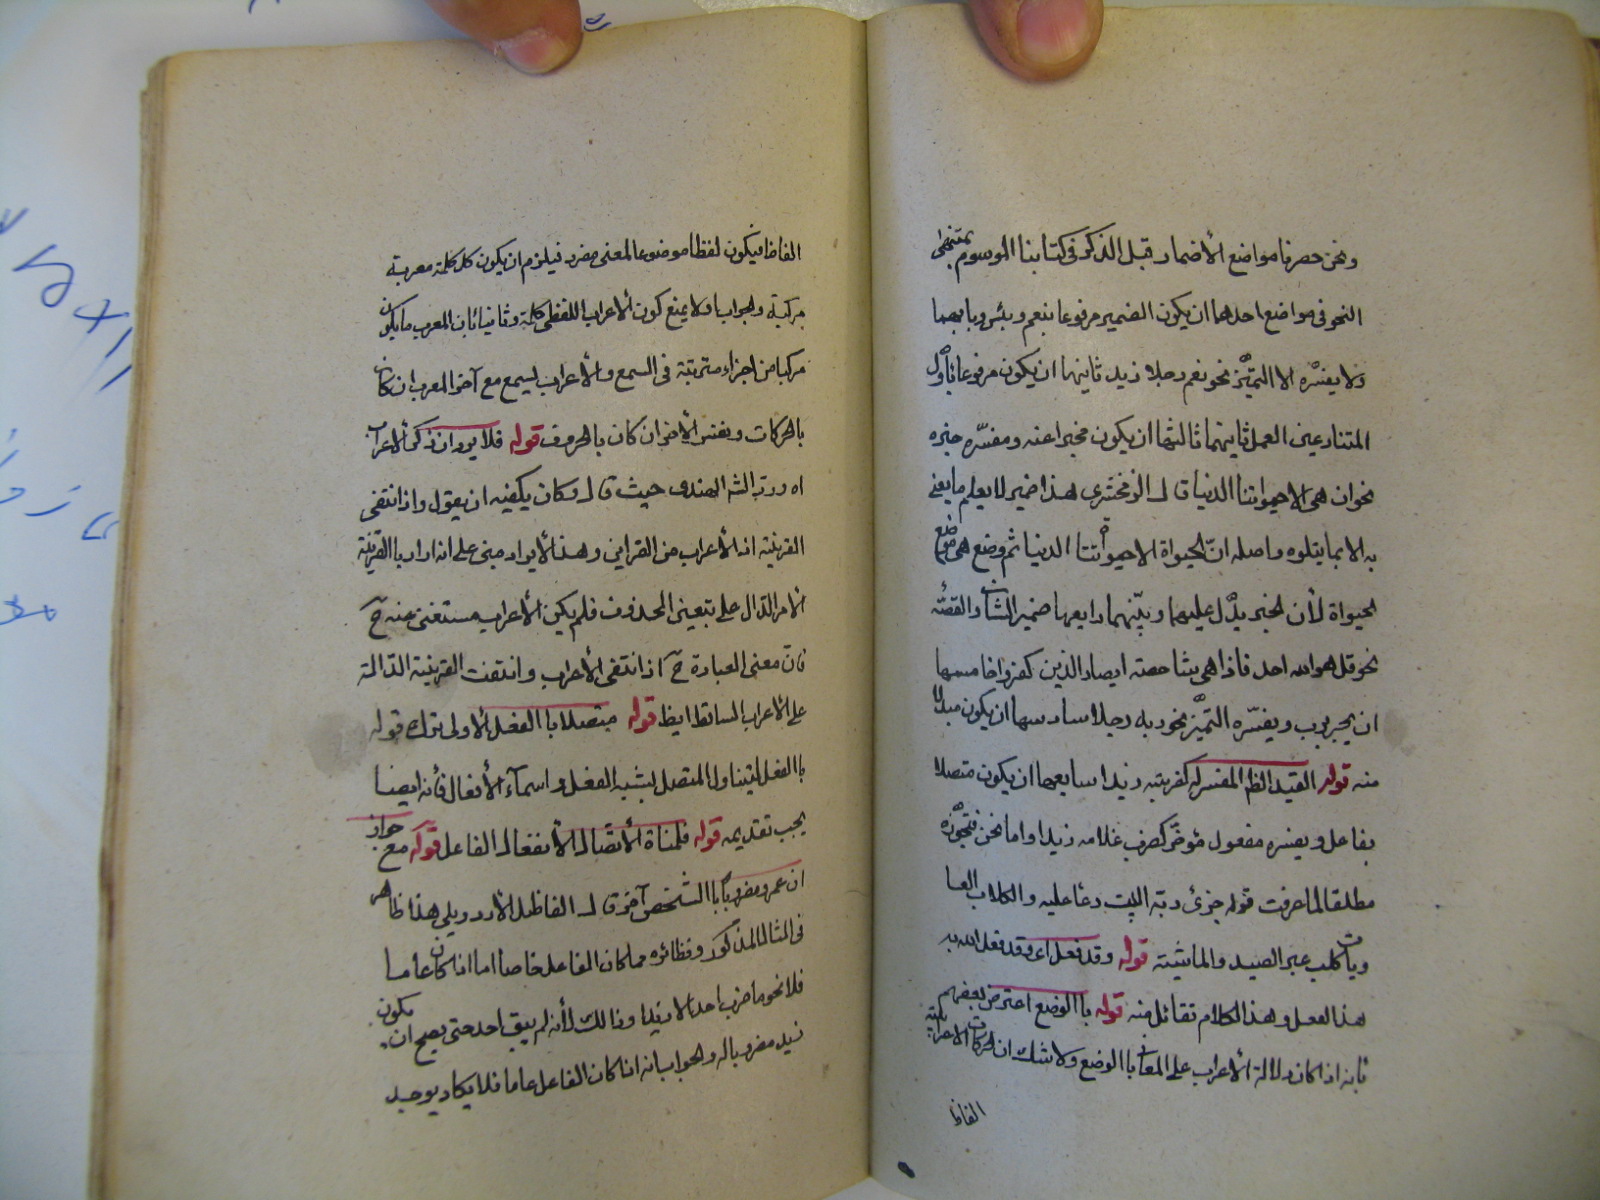 ونحن حصرنا مواضع الأضمار قبل الذكر فى كتابنا الموسوم بمنتهى
النحو فى مواضع احدها ان يكون الضمير مرفوعا بنعم وبئس وبابهما
ولا يفسّره الا التميّز نحو نعم رجلا زيد ثانيها ان يكون مرفوعا باوّل
المتنازعين العمل ثانيهما ثالثها ان يكون مخبرا عنه ومفسّره خبره
نحو ان هى الا حيواتنا الدنيا قال الزمخشرى هذا ضمير لا يعلم ما يعنى
به الا بما يتلوه واصله انّ الحيواة الا حيواتنا الدنيا ثم وضع هى موضع
الحيواة لأن الخبر يدّل عليها ويبّنها رابعها ضمير الشأن والقصّة
نحو قل هو الله احد فاذا هى شاخصة ابصار الذين كفروا خامسها
ان يجر برب ويفسّره التميّز نحو ربه رجلا سادسها ان يكون مبدلا
منه قوله الظ المفسر له كضربته زيدا سابعها ان يكون متصلا
بفاعل ويفسره مفعول مؤخّر كضرب غلامه زيدا واما نحن فنجوّزه
مطلقا لما عرفت قوله جزى ربه البيت دعا عليه والكلاب العا
ويات كلب عبر الصيد والماشية قوله وقد فعل اى وقد فعل الله به
هذا الفعل وهذا الكلام تفائل منه قوله باالوضع اعترض بعضهم
بانه اذا كان دلالة الأعراب على المعانى باالوضع ولا شك ان الحركات الاعرابية
الفاظ
الفاظا فيكون لفظا موضوعا لمعنى مفرد فيلزم ان يكون كل كلمة معربة
مركبة والجواب اولا بمنع كون الأعراب اللفظى كلمة وثانيا بان المعرب ما يكون
مركبا من اجزاء مترتبة فى السمع والأعراب يسمع مع آخر المعرب ان كان
بالحركات ونفس الأخر ان كان بالحروف قوله فلا يرد ان ذكر الأعراب
اه ورد الش الهندى حيث قال وكان يكفيه ان يقول واذا انتفى
القرينة اذ الأعراب من القراين وهذا الأيراد مبنى على انه اراد باالقرينة
الأمر الدّال على تعيين المحذوف فلم يكن الأعراب مستغنى عنه ح
فانّ معنى العبارة ح اذا انتفى الأعراب وانتفت القرينة الدّالة
على الأعراب الساقط ايظا قوله متصلا باالفعل الأولى ترك قوله
باالفعل ليتناول المتصل بشبه الفعل واسمآء الأفعال فأنه ايضا
يجب تقديمه قوله فلمنافاة الأتصال الأنفصال الفاعل قوله مع جواز
ان عمرو مضروبا باالشخص آخر قال الفاظل الأردويلى هذا ظاهر
فى المثال المذكور ونظائره مما كان الفاعل خاصا اما اذا كان عاما
فلا نحو ما ضرب احد الا زيدا وذالك لأنه لم يبق احد حتى يصح ان يكون
زيد مضروبا له والجواب انه اذا كان الفاعل عاما فلا يكاد يوجد